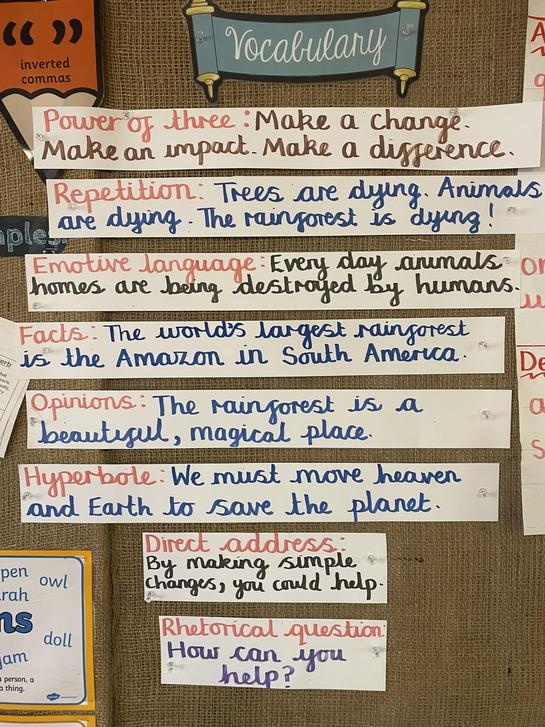 inverted
commas
Vocabulary
Power of three: Make a change.
Make an impact. Make a difference.
Repetition: Trees are dying. Animals
are dying. The rainforest is dying!
Emotive language: Every day animals
homes are being destroyed by humans.
Facts: The world's largest rainforest
is the Amazon in South America.
Opinions: The rainforest is a
beautiful, magical place.
Hyperbole: We must move heaven
and Earth to save the planet.
Direct address:
By making simple
changes, you could help.
Rhetorical question:
How can you
help?
pen owl
rah
ns
doll
jam
a person, a
a thing.